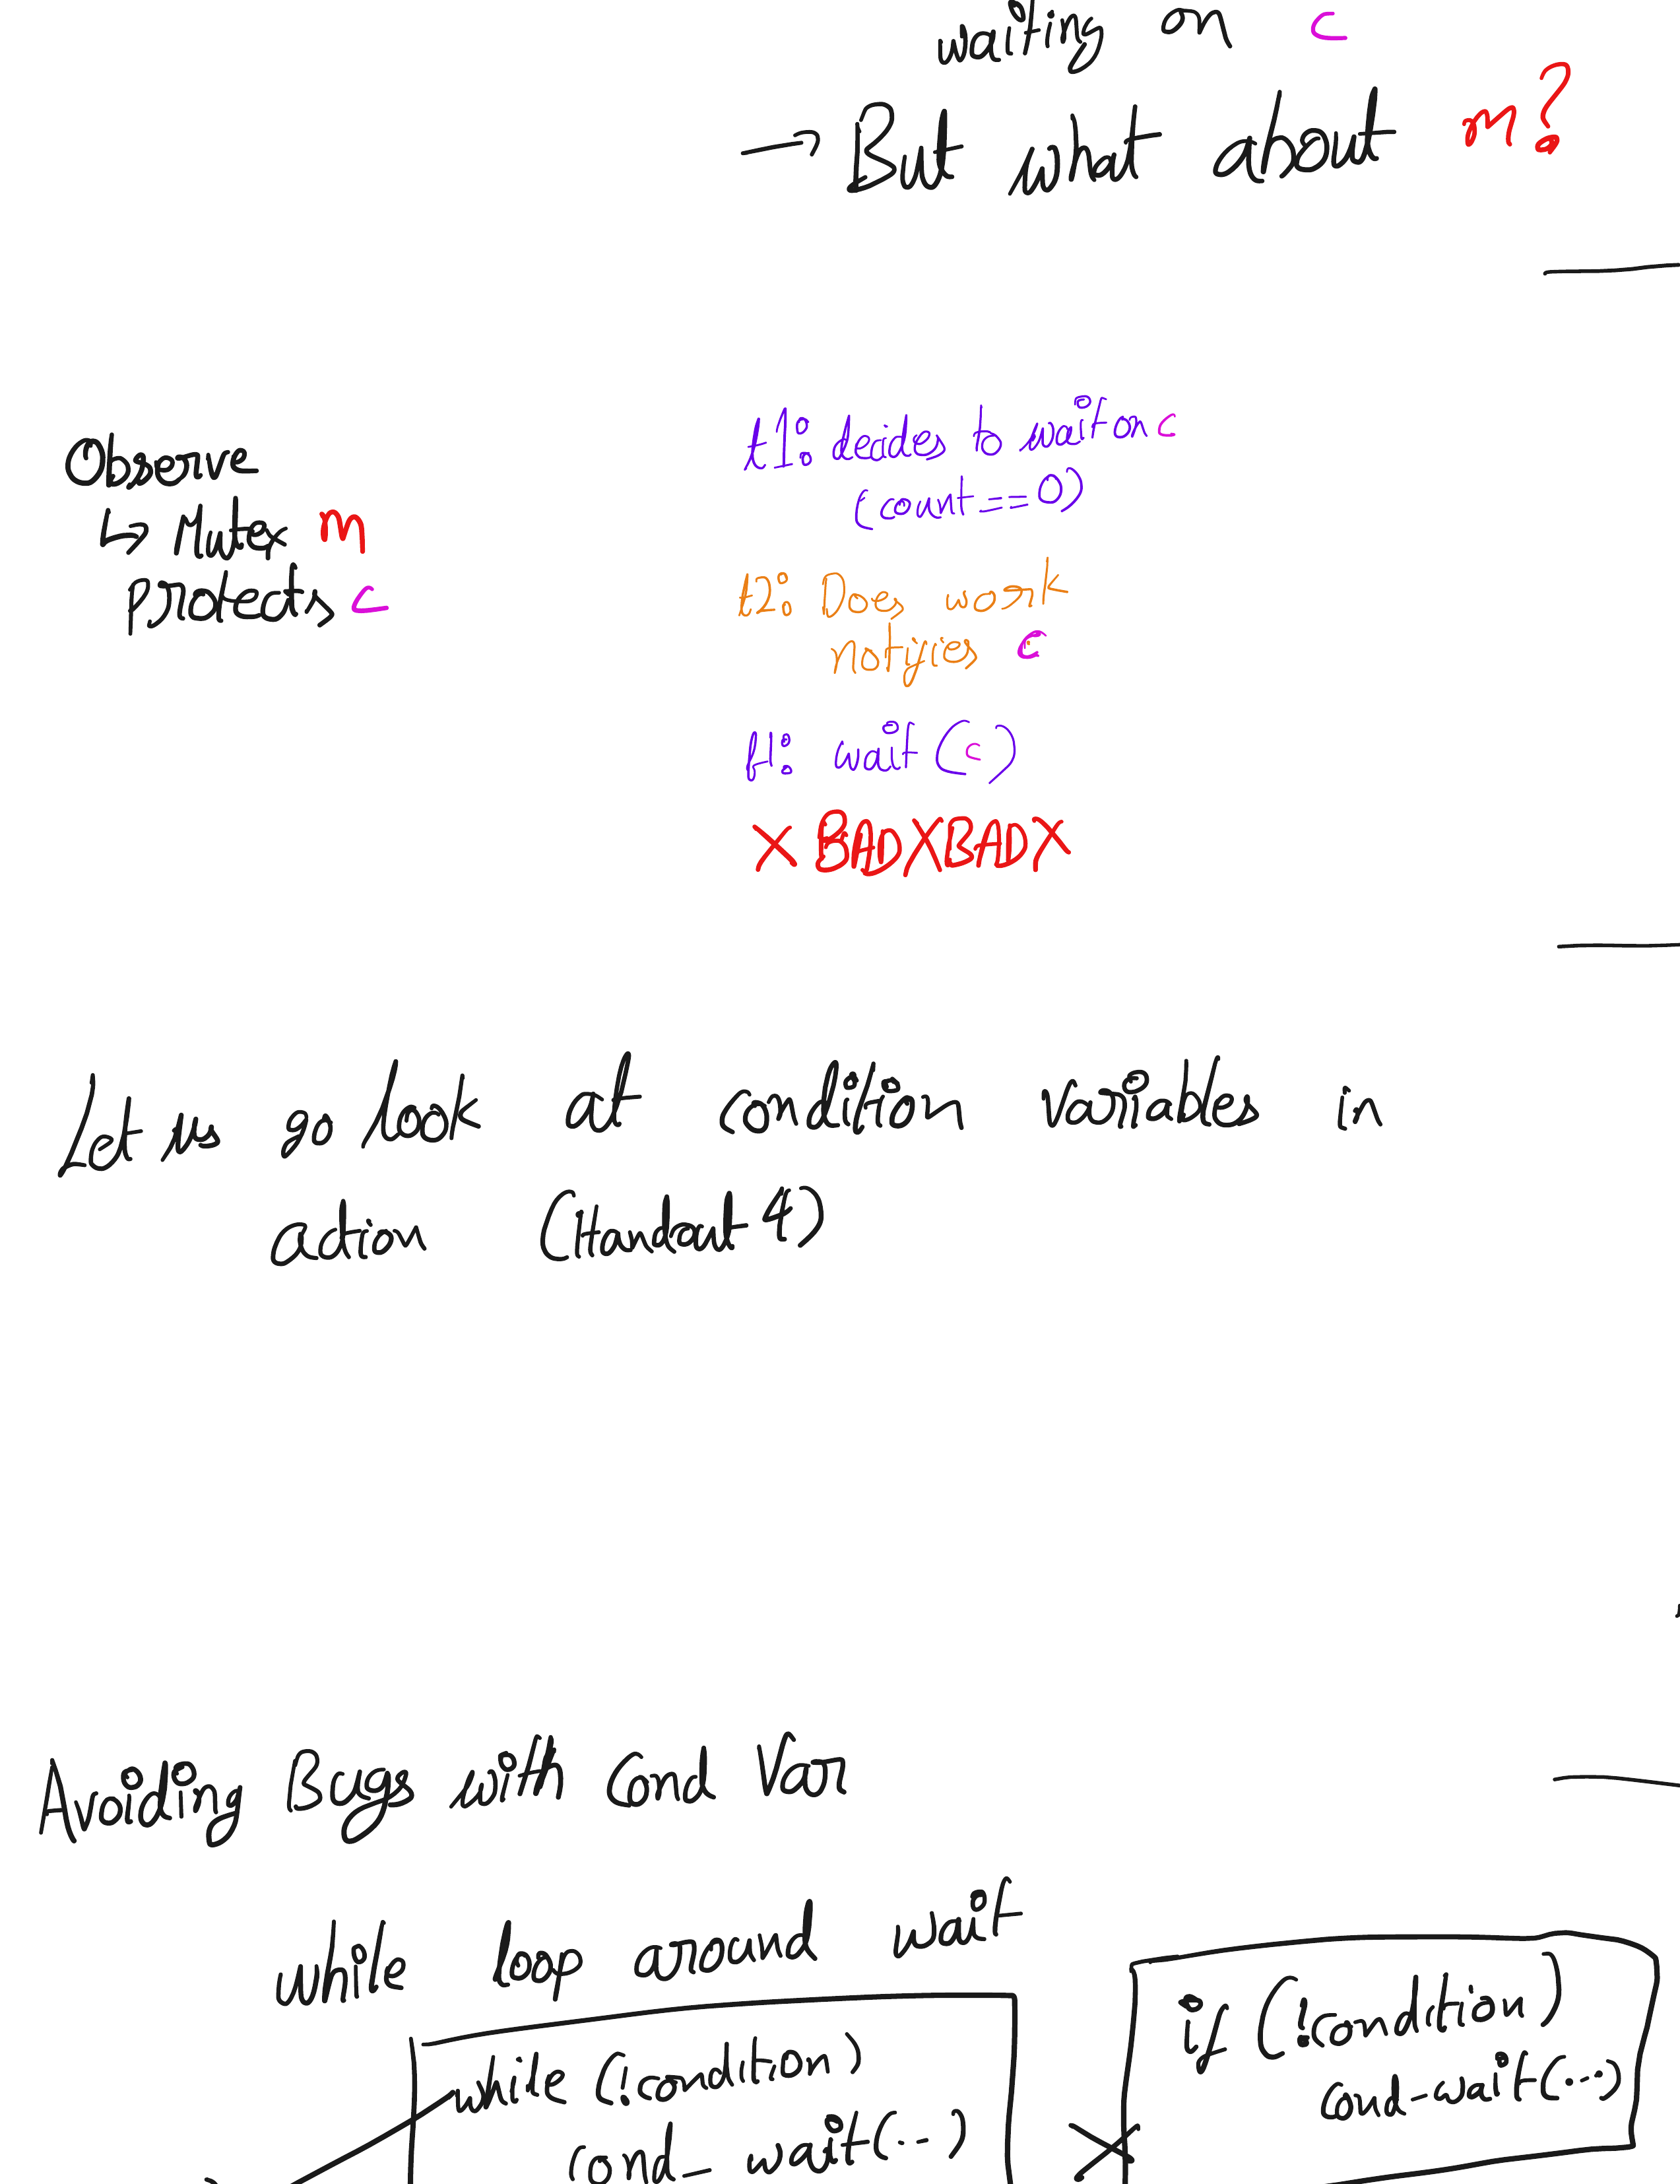 waiting on c
→ But what about m?
Observe
↳ Mutex m
protects c
t1: decides to wait on c
(count == 0)
t2: Does work
notifies c
t1: wait (c)
X BAD X BAD X
Let us go look at condition variables in
action (Handout 4)
Avoiding Bugs with Cond Var
while loop around wait
while (!condition)
cond_wait(..)
X
if (!condition)
cond_wait(...)